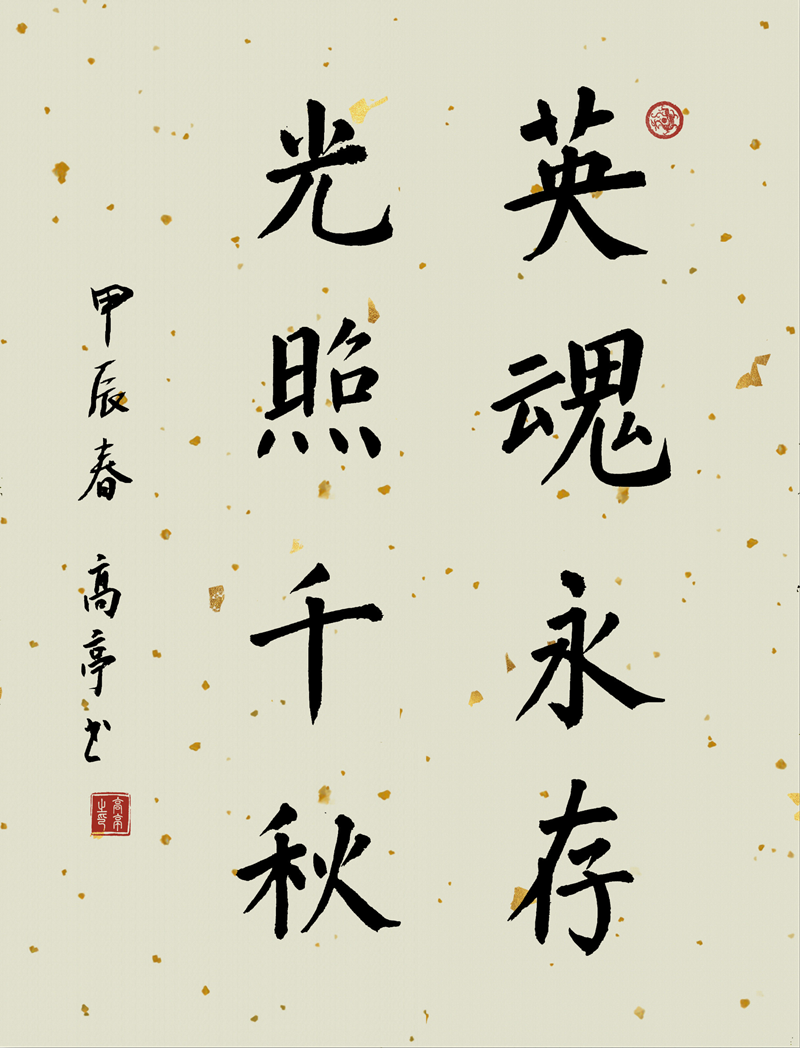 英魂永存
光照千秋
甲辰春 高亭书
高亭之印